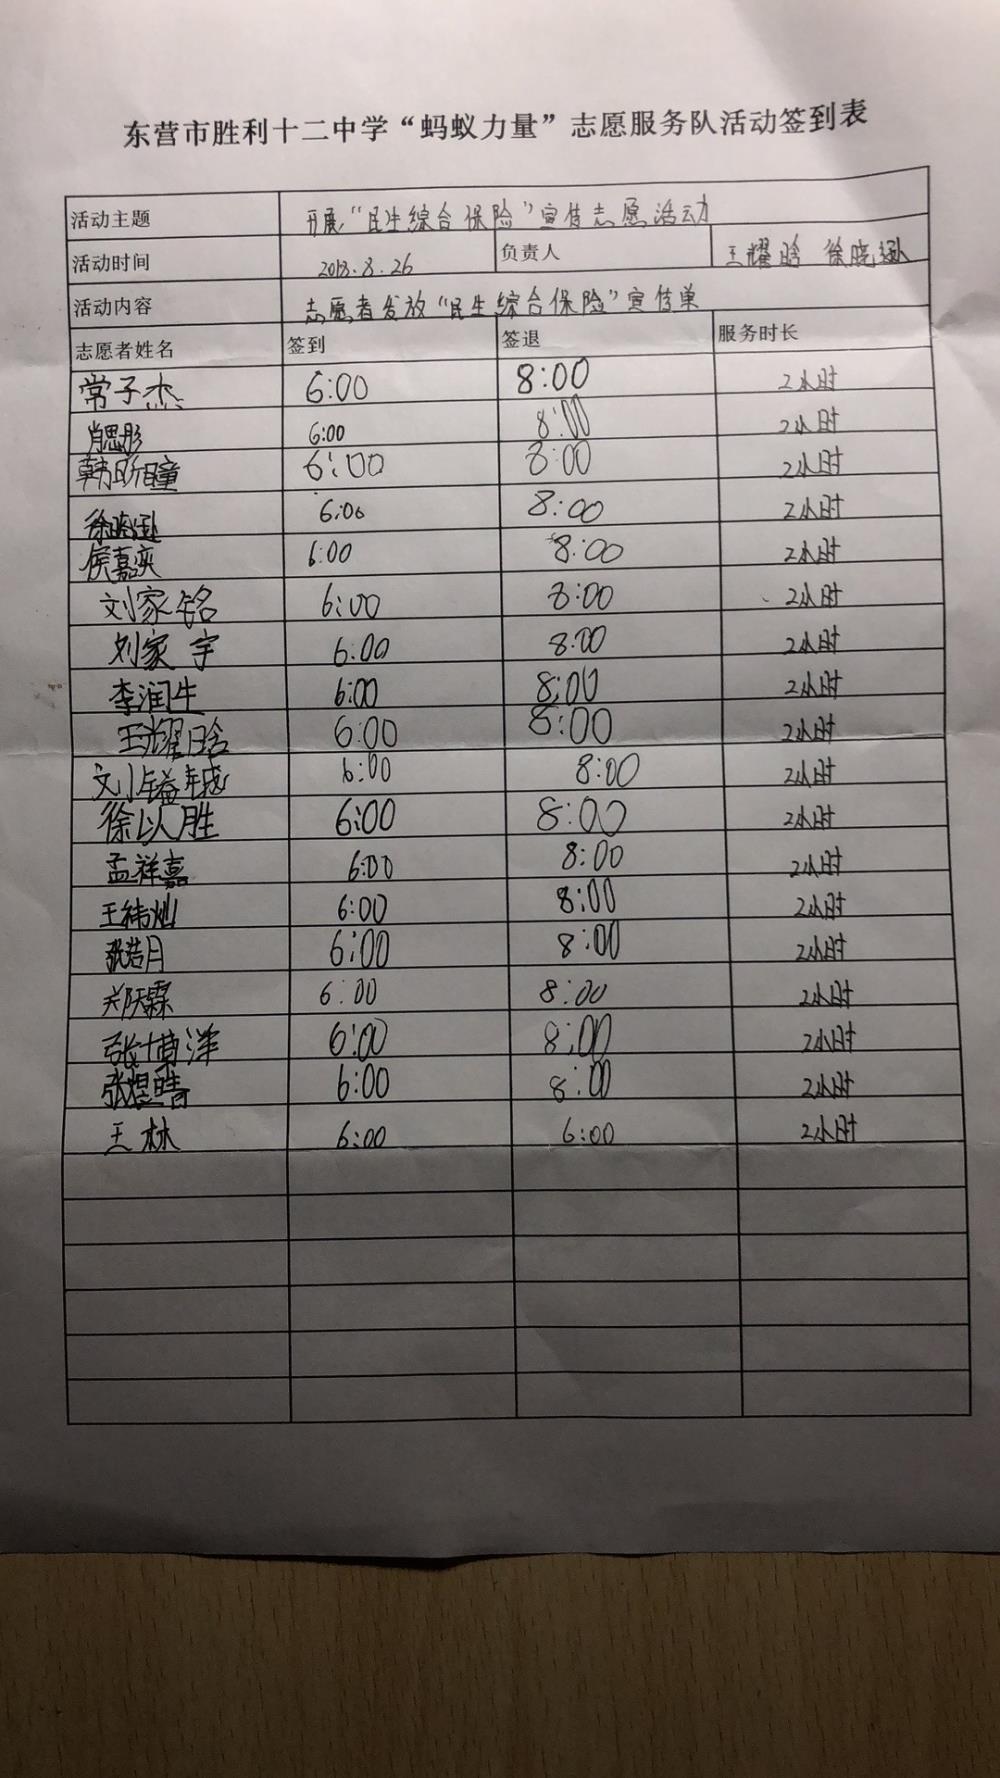 东营市胜利十二中学“蚂蚁力量”志愿服务队活动签到表
活动主题 开展“民生综合保险”宣传志愿活动
活动时间 2018.8.26 负责人 王耀晗 徐晓逊
活动内容 志愿者发放“民生综合保险”宣传单
志愿者姓名 签到 签退 服务时长
常子杰 6:00 8:00 2小时
肖思彤 6:00 8:00 2小时
韩昕瞳 6:00 8:00 2小时
徐晓逊 6:00 8:00 2小时
侯嘉奕 6:00 8:00 2小时
刘家铭 6:00 8:00 2小时
刘家宇 6:00 8:00 2小时
李润生 6:00 8:00 2小时
王耀晗 6:00 8:00 2小时
刘镒铖 6:00 8:00 2小时
徐以胜 6:00 8:00 2小时
孟祥嘉 6:00 8:00 2小时
王祎灿 6:00 8:00 2小时
张浩月 6:00 8:00 2小时
郑天霖 6:00 8:00 2小时
张博洋 6:00 8:00 2小时
张煜晴 6:00 8:00 2小时
王林 6:00 6:00 2小时